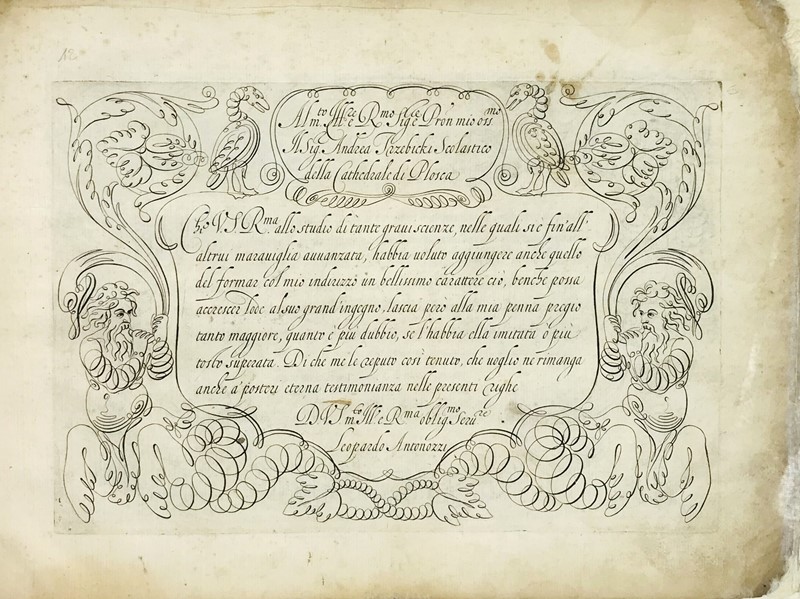 12
Al m.to Ill.re e R.mo Sig.re e P̃ron mio oss.mo
Il Sig. Andrea Trzebicki Scolastico
della Cathedrale di Plosca
Che V.S. R.ma allo studio di tante graui scienze, nelle quali si è fin'all'
altrui marauiglia auuanzata, habbia uoluto aggiungere anche quello
del formar col mio indirizzo un bellissimo carattere ciò, benche possa
accrescer lode al suo grand'ingegno, lascia però alla mia penna pregio
tanto maggiore, quanto è piu dubbio, se l'habbia ella imitata ò piu
tosto superata. Di che me le reputo cosi tenuto, che uoglio ne rimanga
anche a' posteri eterna testimonianza nelle presenti righe
D.V.S. m.to Ill.re e R.ma oblig.mo Seru.re
Leopardo Antonozzi